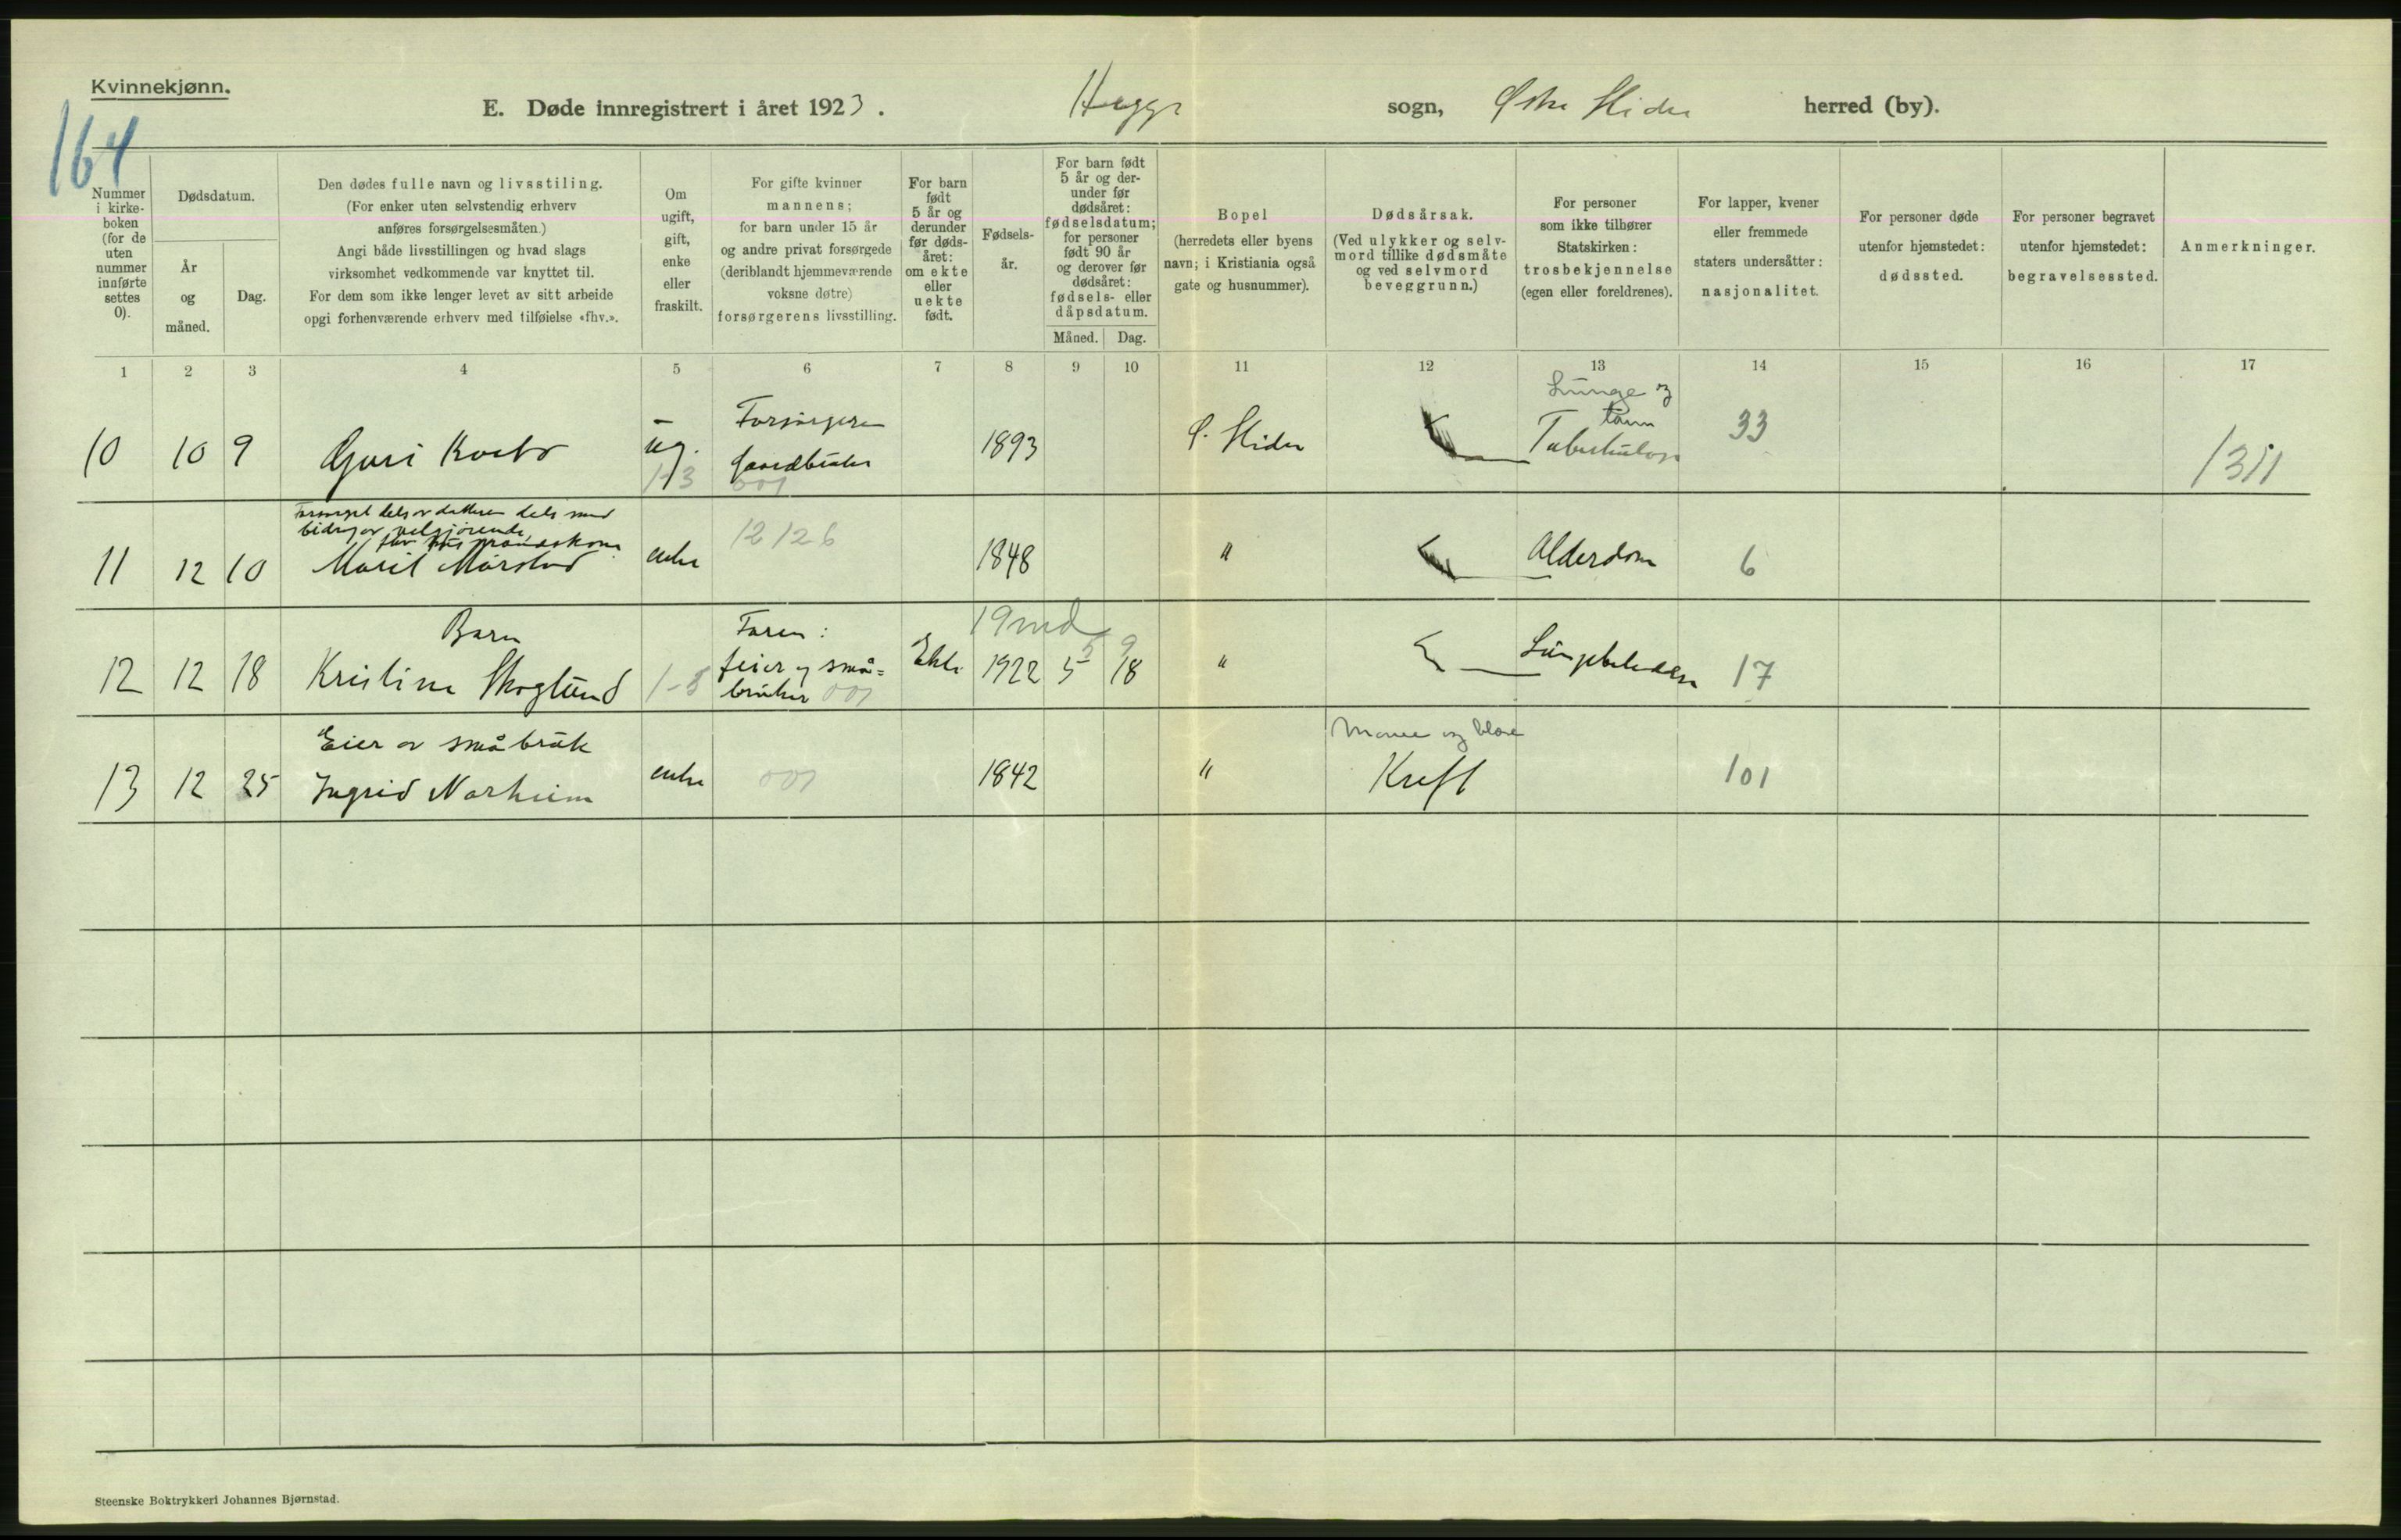 Kvinnekjønn.
164
E. Døde innregistrert i året 1923.
Hegge sogn, Østre Slidre herred (by).
Nummer i kirkeboken (for de uten nummer innførte settes 0).
Dødsdatum.
År og måned.
Dag.
Den dødes fulle navn og livsstiling.
(For enker uten selvstendig erhverv
anføres forsørgelsesmåten.)
Angi både livsstillingen og hvad slags
virksomhet vedkommende var knyttet til.
For dem som ikke lenger levet av sitt arbeide
opgi forhenværende erhverv med tilføielse «fhv.».
Om
ugift,
gift,
enke
eller
fraskilt.
For gifte kvinner
mannens;
for barn under 15 år
og andre privat forsørgede
(deriblandt hjemmeværende
voksne døtre)
forsørgerens livsstilling.
For barn
født
5 år og
derunder
før døds-
året:
om ekte
eller
uekte
født.
Fødsels-
år.
For barn født
5 år og der-
under før
dødsåret:
fødselsdatum;
for personer
født 90 år
og derover før
dødsåret:
fødsels- eller
dåpsdatum.
Måned. Dag.
Bopel
(herredets eller byens
navn; i Kristiania også
gate og husnummer).
Dødsårsak.
(Ved ulykker og selv-
mord tillike dødsmåte
og ved selvmord
beveggrunn.)
For personer
som ikke tilhører
Statskirken:
trosbekjennelse
(egen eller foreldrenes).
For lapper, kvener
eller fremmede
staters undersåtter:
nasjonalitet.
For personer døde
utenfor hjemstedet:
dødssted.
For personer begravet
utenfor hjemstedet:
begravelsessted.
Anmerkninger.
1 2 3 4 5 6 7 8 9 10 11 12 13 14 15 16 17
Lunge og
tarm
Forsørgeren
10 10 9 Guri ug. Gaardbruker 1893 Ø. Slidre Tuberkulose 33 1311
1-3 001
Forsørget dels av datteren dels med
bidrag av velgjørende
11 12 10 Marit enke 12126 1848 " Alderdom 6
Barn Faren: 19 md 5 9
12 12 18 Kristine Skoglund 1-8 feier og små=
bruker 001 Ekte 1922 5 18 " Lungebetendelse 17
Eier av småbruk Mave og blære
13 12 25 Ingrid Norheim enke 001 1842 " Kreft 101
Steenske Boktrykkeri Johannes Bjørnstad.